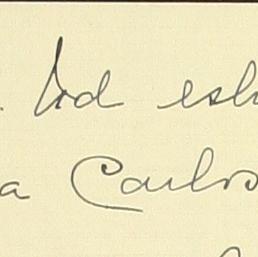 Ud esh
a Carlos